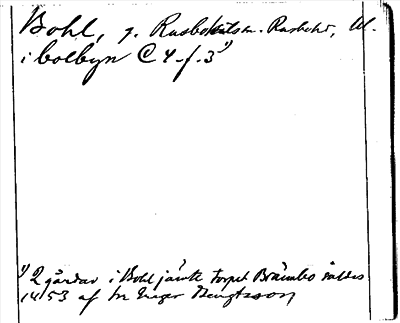 Bohl, g. Rasbokils sn. Rasbo hd, Ul.
i bolbyn C 4 f. 3 1)
1) 2 gårdar i Bohl jämte torpet Brämbo såldes
14/53 af hr Inger Bengtsson